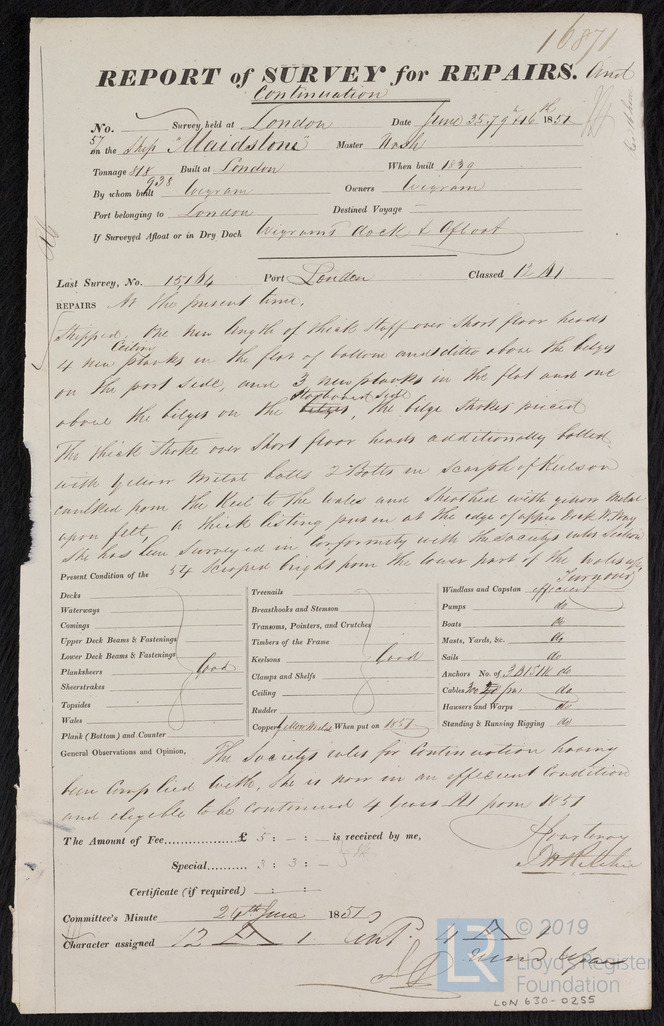 16871
REPORT of SURVEY for REPAIRS. And
Continuation
No. Survey held at London Date June 3 5 7 9 & 16th 1851
57
on the Ship "Maidstone" Master Nash
Tonnage 818 Built at London When built 1839
938
By whom built Wigram Owners Wigram
Port belonging to London Destined Voyage
If Surveyed Afloat or in Dry Dock Wigrams dock & Afloat
Last Survey, No. 15,184 Port London Classed 12 A1
REPAIRS At the present time,
Shipped, One new length of thick stuff over short floor heads
Ceiling
4 new planks in the flat of bottom and ditto above the bilges
on the port side, and 3 new planks in the flat and one
Starboard side
above the bilges on the bilges, the bilge strakes pieced
The thick strake over short floor heads additionally bolted
with yellow metal bolts 2 Bolts in scarph of Keelson
caulked from the Keel to the wales and sheathed with yellow metal
upon felt, a thick listing put in at the edge of upper Deck W.Way
She has been surveyed in conformity with the Societys rules Section
54 scraped bright from the lower part of the wales up,
Present Condition of the
Decks
Waterways
Comings
Upper Deck Beams & Fastenings
Lower Deck Beams & Fastenings
Planksheers Good
Sheerstrakes
Topsides
Wales
Plank (Bottom) and Counter
Treenails
Breasthooks and Stemson
Transoms, Pointers, and Crutches
Timbers of the Frame
Keelsons Good
Clamps and Shelfs
Ceiling
Rudder
Copper Yellow Metal When put on 1851
Windlass and Capstan efficient
Pumps do
Boats do
Masts, Yards, &c. do
Sails do
Anchors No. of 3 B 1 S 1 K do
Cables 300 fms do
Hawsers and Warps do
Standing & Running Rigging do
General Observations and Opinion, The Societys rules for Continuation having
been complied with, She is now in an efficient Condition
and eligible to be continued 4 Years A1 from 1851
The Amount of Fee £ 5 : - : - is received by me,
Special 3 : 3 : -
J H Ritchie
Certificate (if required) - : - :
Committee's Minute 24th June 1851
Character assigned 12 A 1 Cont. 4 A 1
© 2019
LR
Lloyd's Register
Foundation
LON 630-0255